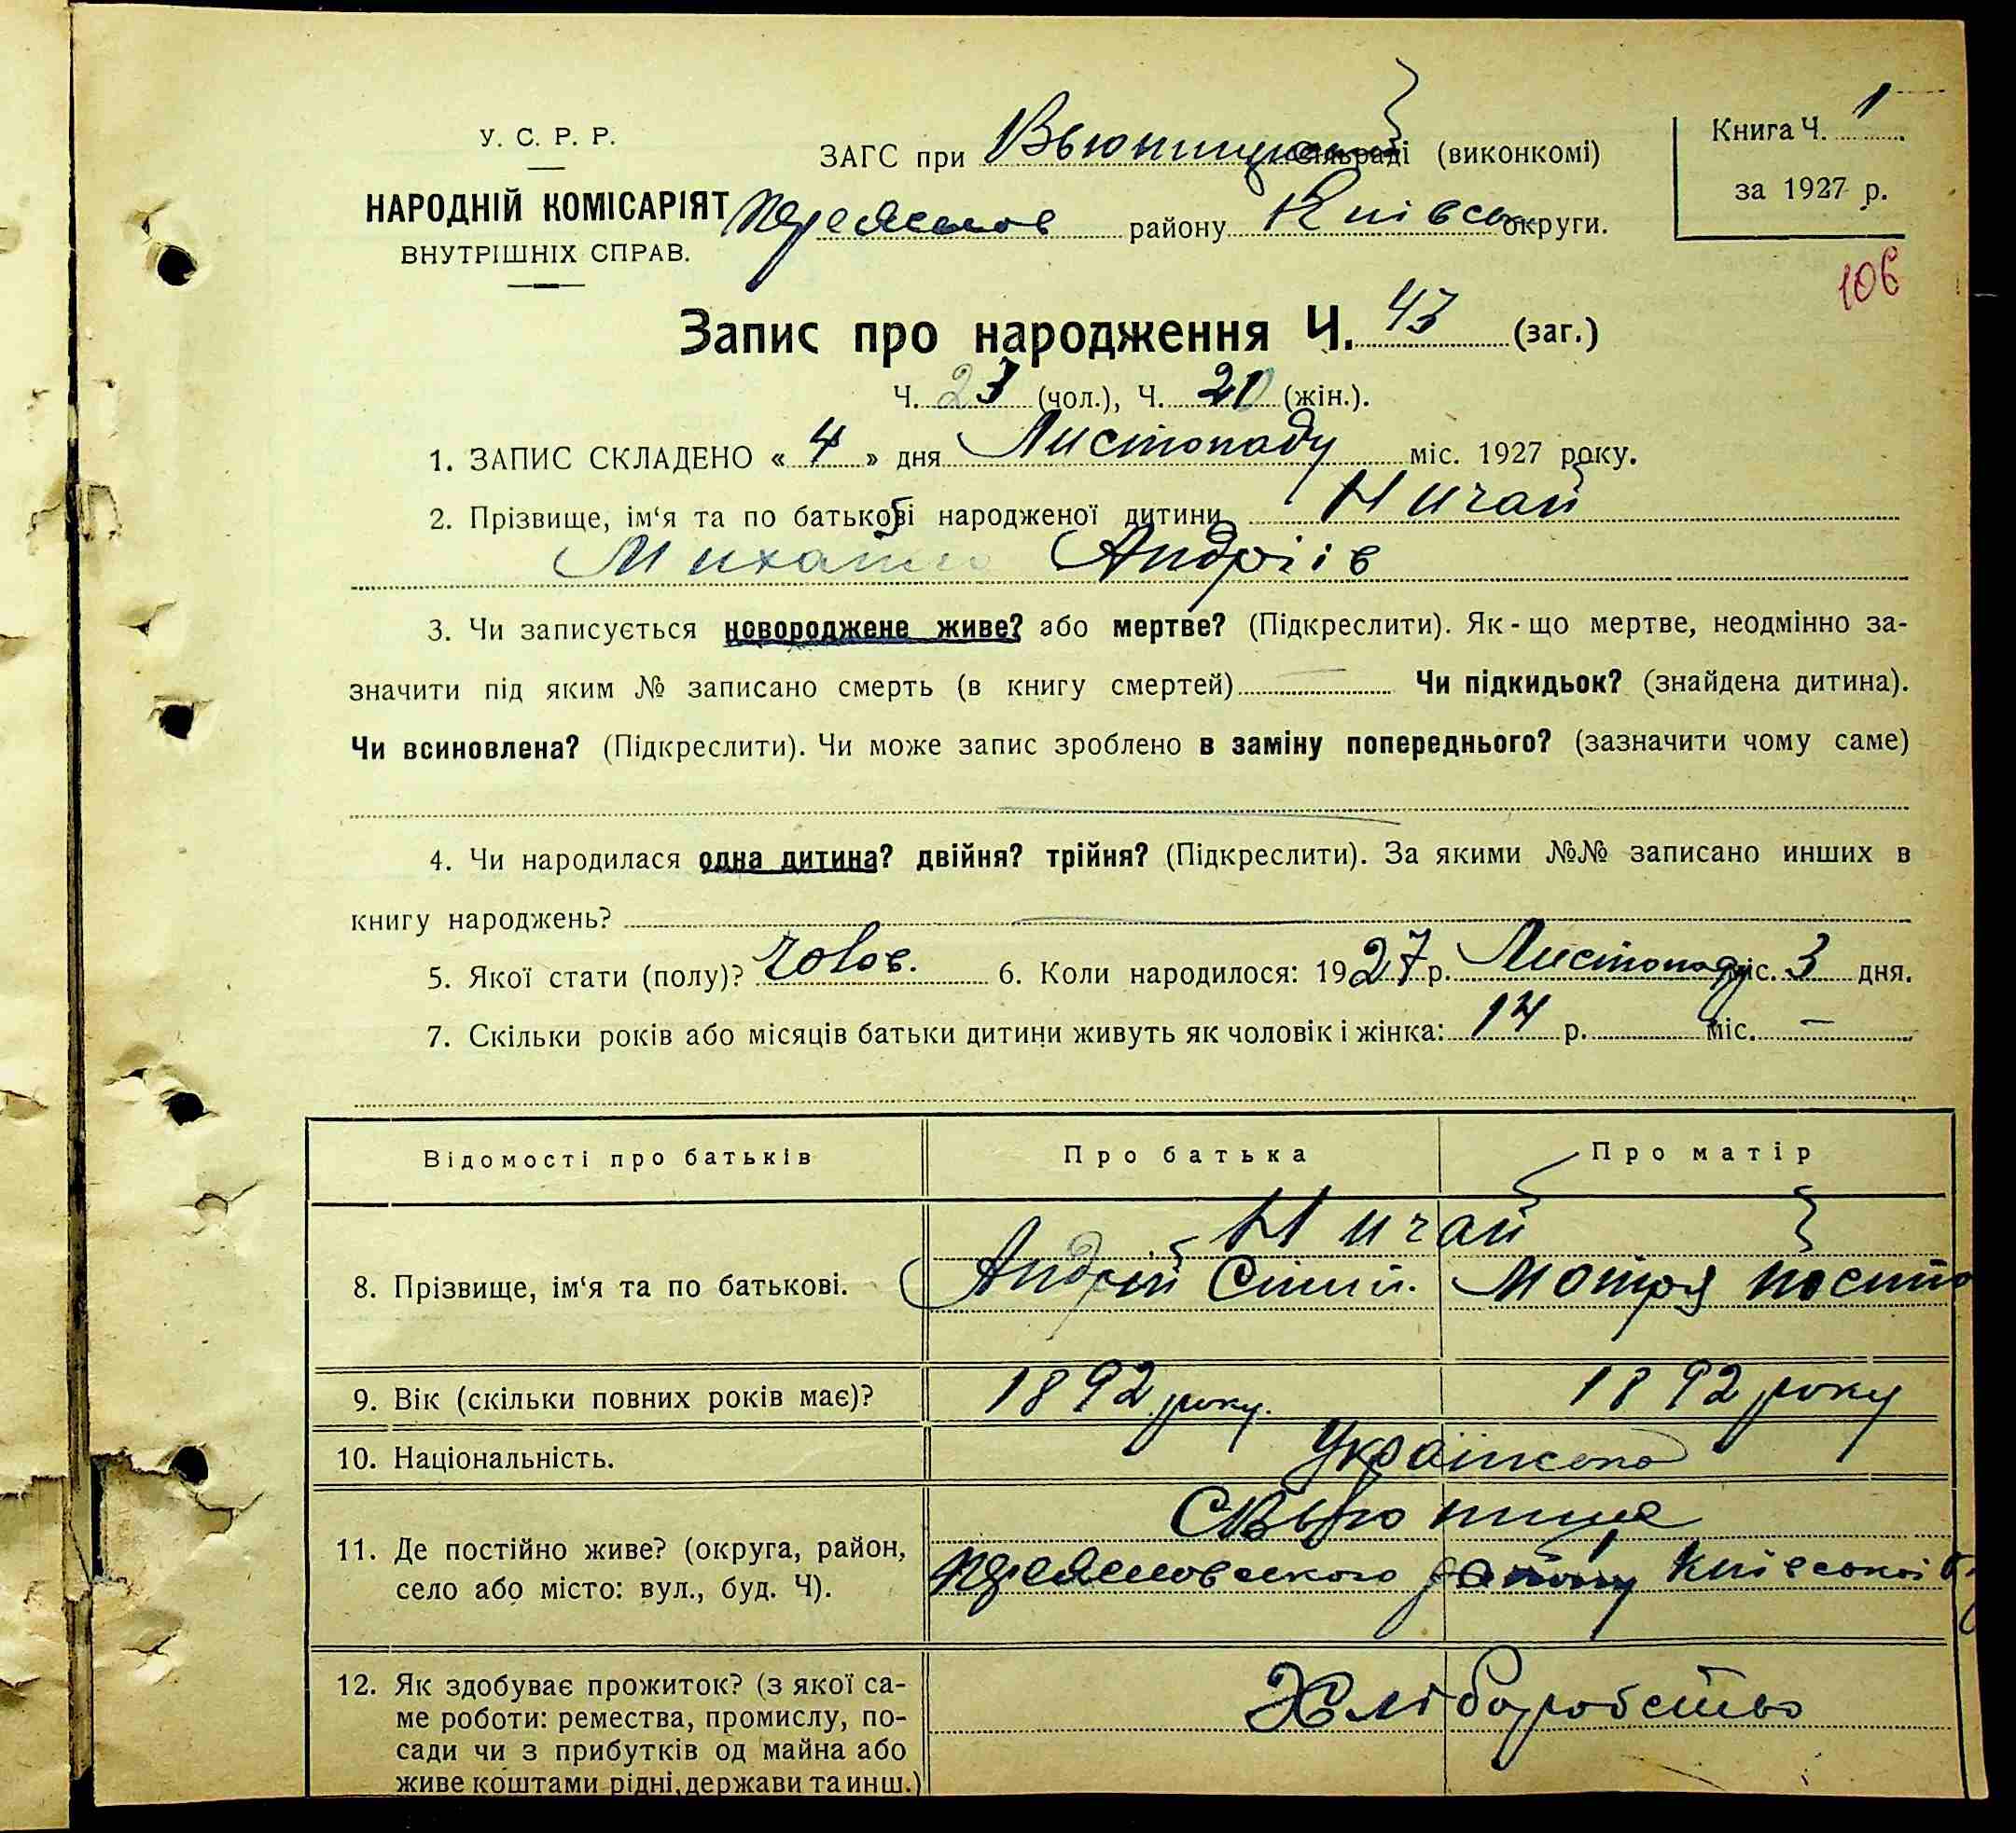 У. С. Р. Р.
НАРОДНІЙ КОМІСАРІЯТ
ВНУТРІШНІХ СПРАВ.
ЗАГС при Вьюницкой сільраді (виконкомі)
Переяслов району Київськ округи.
Книга Ч. 1
за 1927 р.
106
Запис про народження Ч. 43 (заг.)
Ч. 23 (чол.), Ч. 20 (жін.).
1. ЗАПИС СКЛАДЕНО « 4 » дня Листопаду міс. 1927 року.
2. Прізвище, ім‘я та по батькові народженої дитини Ничай
Михайло Андріїв
3. Чи записується новороджене живе? або мертве? (Підкреслити). Як-що мертве, неодмінно за-
значити під яким № записано смерть (в книгу смертей) Чи підкидьок? (знайдена дитина).
Чи всиновлена? (Підкреслити). Чи може запис зроблено в заміну попереднього? (зазначити чому саме)
4. Чи народилася одна дитина? двійня? трійня? (Підкреслити). За якими №№ записано инших в
книгу народжень?
5. Якої стати (полу)? Чолов. 6. Коли народилося: 1927 р. Листопаду міс. 3 дня.
7. Скільки років або місяців батьки дитини живуть як чоловік і жінка: 14 р. міс. —
Відомості про батьків Про батька Про матір
Ничай
8. Прізвище, ім‘я та по батькові. Андрій Мотря
9. Вік (скільки повних років має)? 1892 року. 1892 року
10. Національність. Українська
С Вьюнище
11. Де постійно живе? (округа, район,
село або місто: вул., буд. Ч).
Переясловського району Київської
12. Як здобуває прожиток? (з якої са-
ме роботи: ремества, промислу, по-
сади чи з прибутків од майна або
живе коштами рідні, держави та инш.)
Хліборобство